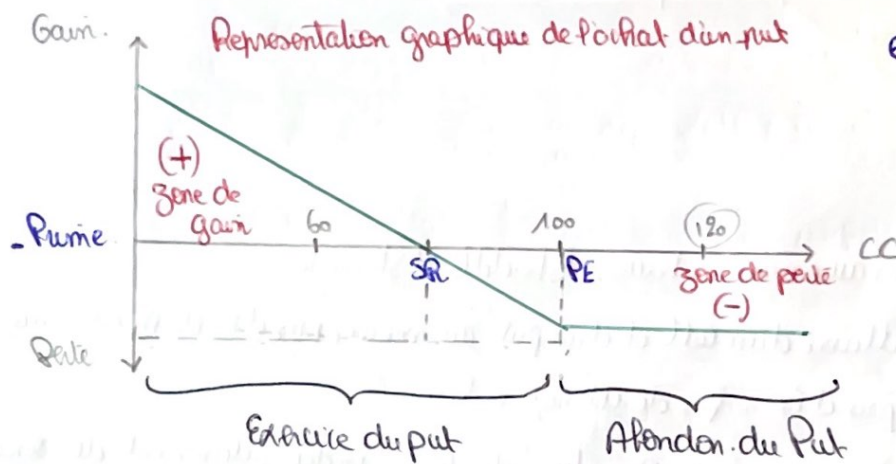 Gain.
Representation graphique de l'achat d'un put
(+)
zone de
gain
60
100
120
- Prime
CC
SR
PE
zone de perte
(-)
Perte
Exercice du put
Abandon du Put